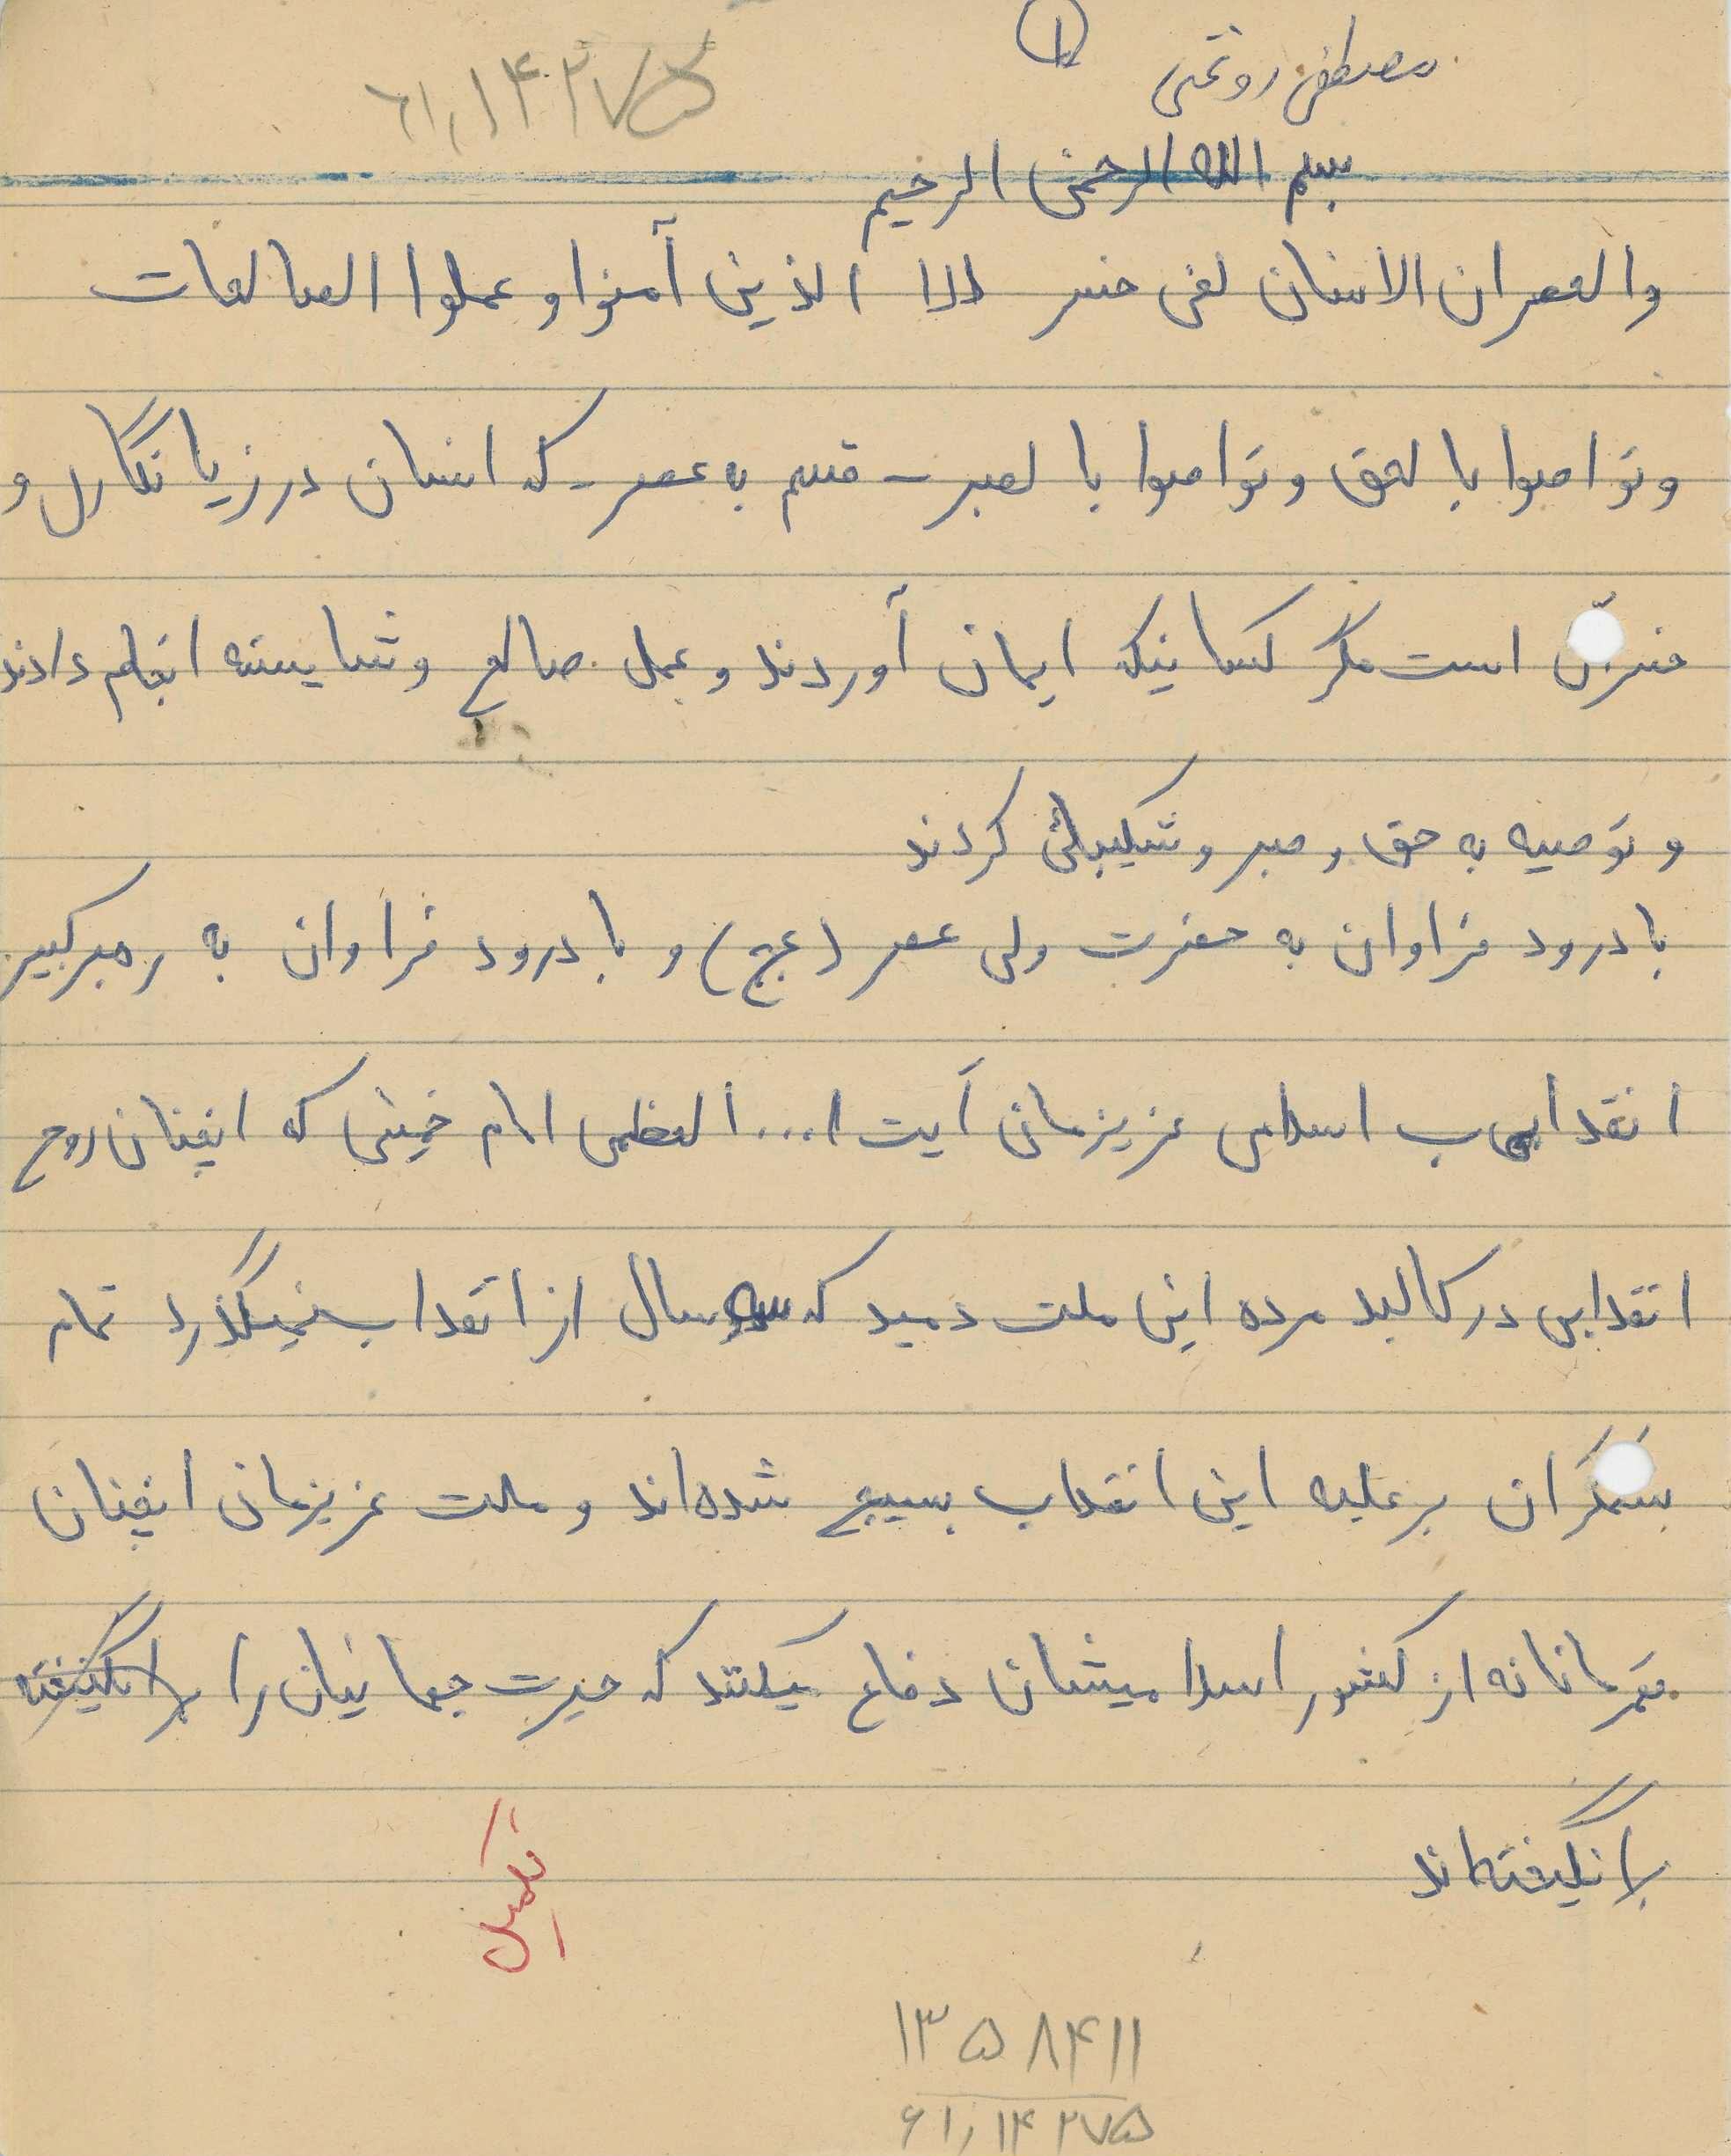 ①
مصطفی رونقی
۶۱,۱۴۲۷۵
بسم الله الرحمن الرحیم
والعصر ان الانسان لفی خسر الا الذین آمنوا و عملوا الصالحات
وتواصوا بالحق وتواصوا بالصبر – قسم به عصر – که انسان در زیانکاری و
خسران است مگر کسانیکه ایمان آوردند و عمل صالح وشایسته انجام دادند
و توصیه به حق و صبر و شکیبائی کردند
با درود فراوان به حضرت ولی عصر (عج) و با درود فراوان به رهبر کبیر
انقلاب اسلامی عزیزمان آیت ا... العظمی امام خمینی که اینچنان روح
انقلابی در کالبد مرده این ملت دمید که سه سال از انقلاب نمیگذرد تمام
ستمگران بر علیه این انقلاب بسیج شده‌اند و ملت عزیزمان اینچنان
قهرمانانه از کشور اسلامیشان دفاع میکنند که حیرت جهانیان را برانگیخته
برانگیخته‌اند
تکمیل
۱۳۵۸۴۱۱
۶۱,۱۴۲۷۵